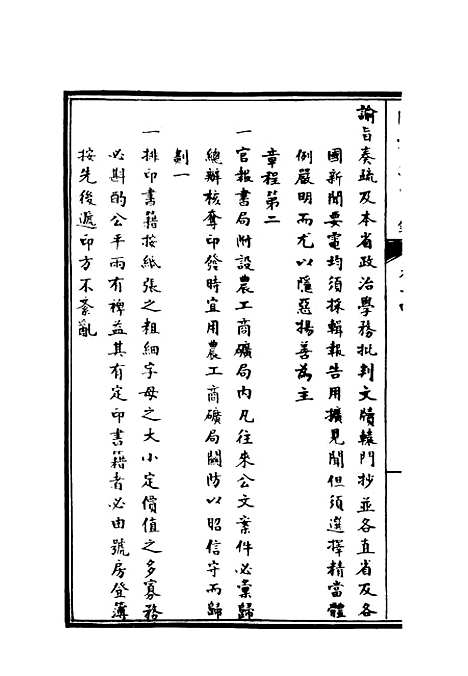 諭旨奏疏及本省政治學務批判文牘轅門抄並各直省及各
國新聞要電均須採輯報告用擴見聞但須選擇精當體
例嚴明而尤以隱惡揚善為主
章程第二
一官報書局附設農工商礦局內凡往來公文案件必稟歸
總辦核奪印發時宜用農工商礦局關防以昭信守而歸
劃一
一排印書籍按紙張之粗細字母之大小定價值之多寡務
必斟酌公平兩有裨益其有定印書籍者必由號房登簿
按先後遞印方不紊亂